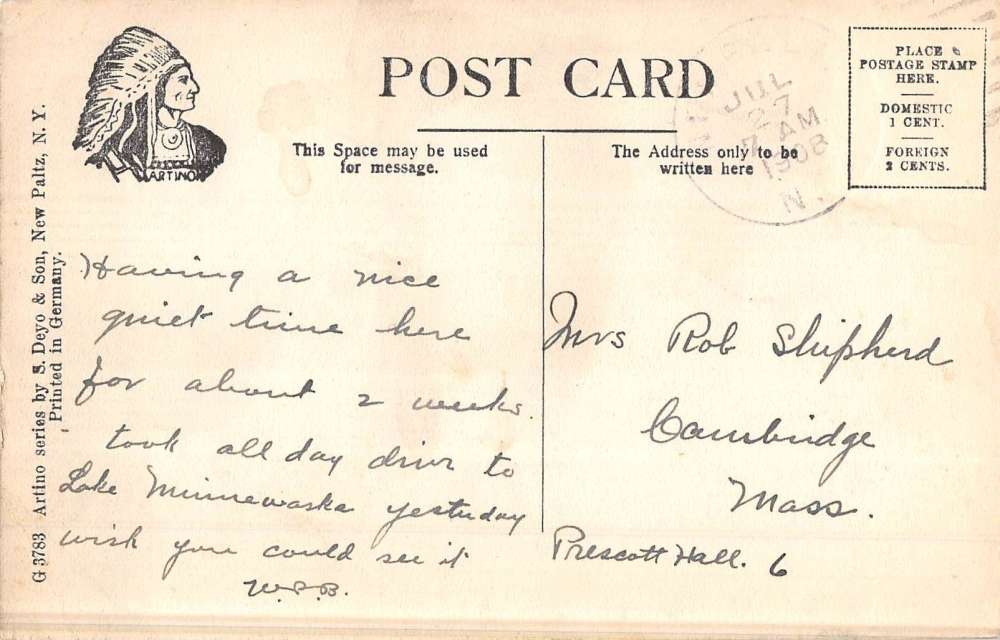 POST CARD
This Space may be used
for message.
The Address only to be
written here
PLACE
POSTAGE STAMP
HERE.
DOMESTIC
1 CENT.
FOREIGN
2 CENTS.
JUL
27
7 AM
1908
N.
ARTINO
G 3783 Artino series by S. Deyo & Son, New Paltz, N. Y.
Printed in Germany.
Having a nice
quiet time here
for about 2 weeks.
took all day drive to
Lake Minnewaska yesterday
wish you could see it
W.P.B.
Mrs Rob Shipherd
Cambridge
Mass.
Prescott Hall. 6